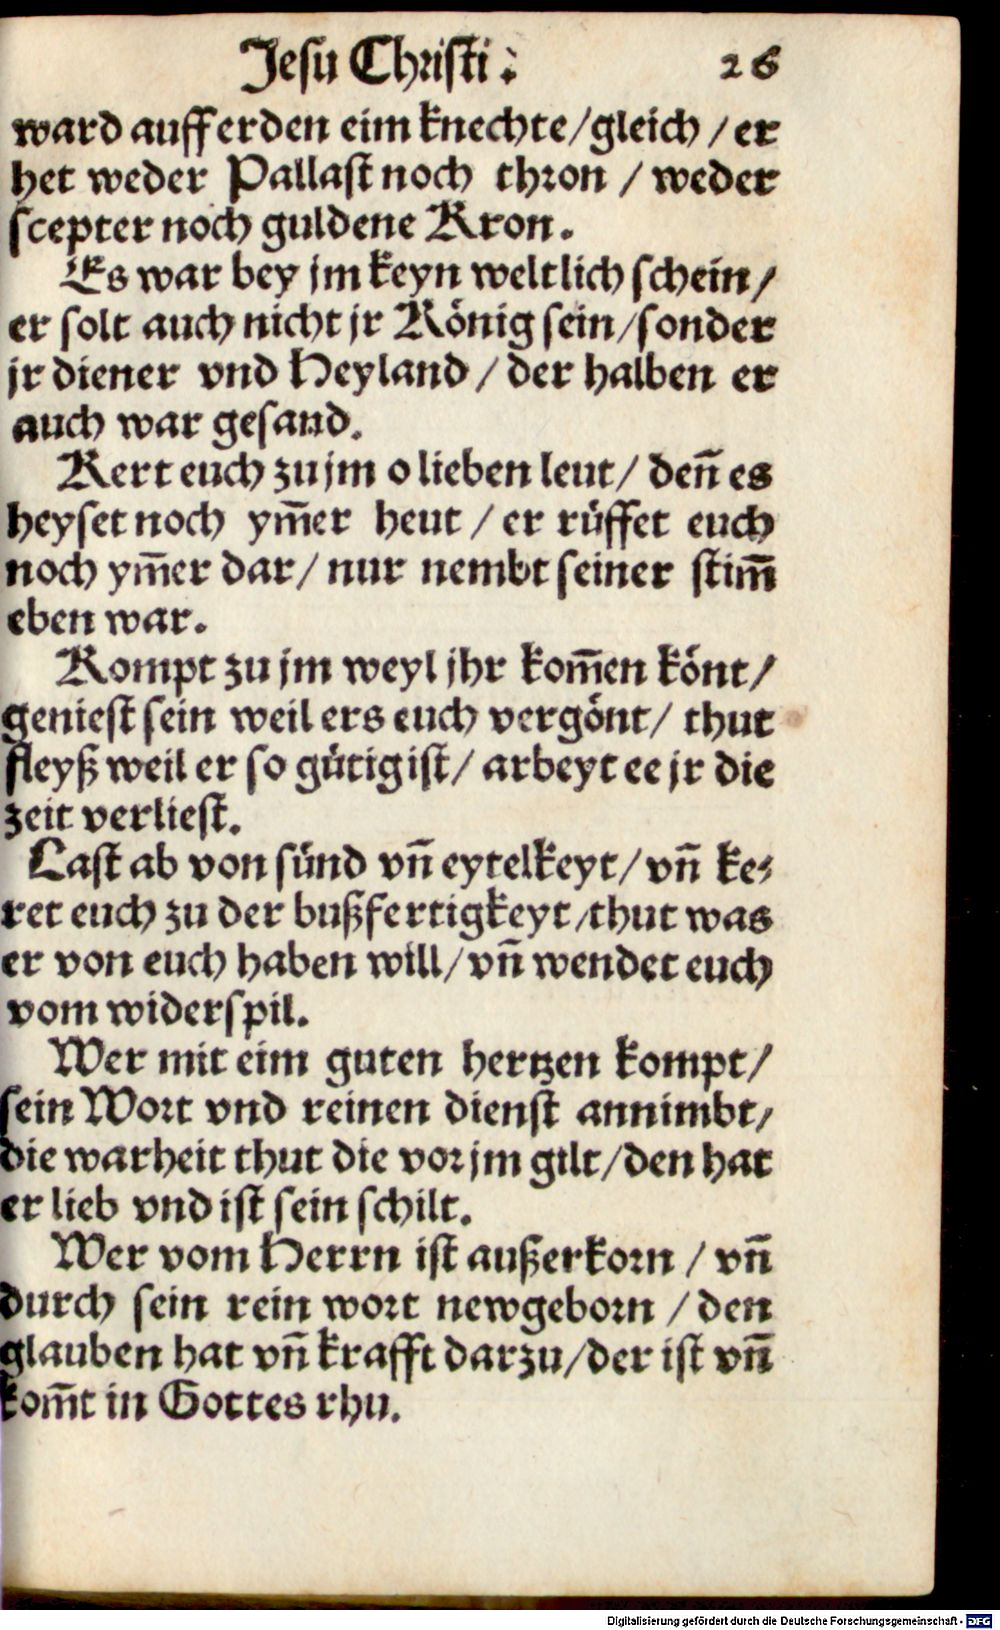 Jesu Christi. 26
ward auff erden eim knechte/gleich / er
het weder Pallast noch thron / weder
scepter noch guldene Kron.
Es war bey jm keyn weltlich schein/
er solt auch nicht jr König sein/sonder
jr diener vnd Heyland / der halben er
auch war gesand.
Kert euch zu jm o lieben leut/ den̄ es
heyset noch ym̄er heut / er rüffet euch
noch ym̄er dar/ nur nembt seiner stim̄
eben war.
Kompt zu jm weyl jhr kom̄en könt/
geniest sein weil ers euch vergönt/ thut
fleyß weil er so gütig ist/ arbeyt ee jr die
zeit verliest.
Last ab von sünd vn̄ eytelkeyt/ vn̄ ke⸗
ret euch zu der bußfertigkeyt/thut was
er von euch haben will/ vn̄ wendet euch
vom widerspil.
Wer mit eim guten hertzen kompt/
sein Wort vnd reinen dienst annimbt/
die warheit thut die vor jm gilt/den hat
er lieb vnd ist sein schilt.
Wer vom Herrn ist außerkorn / vn̄
durch sein rein wort newgeborn / den
glauben hat vn̄ krafft darzu/der ist vn̄
kom̄t in Gottes rhu.
Digitalisierung gefördert durch die Deutsche Forschungsgemeinschaft - DFG